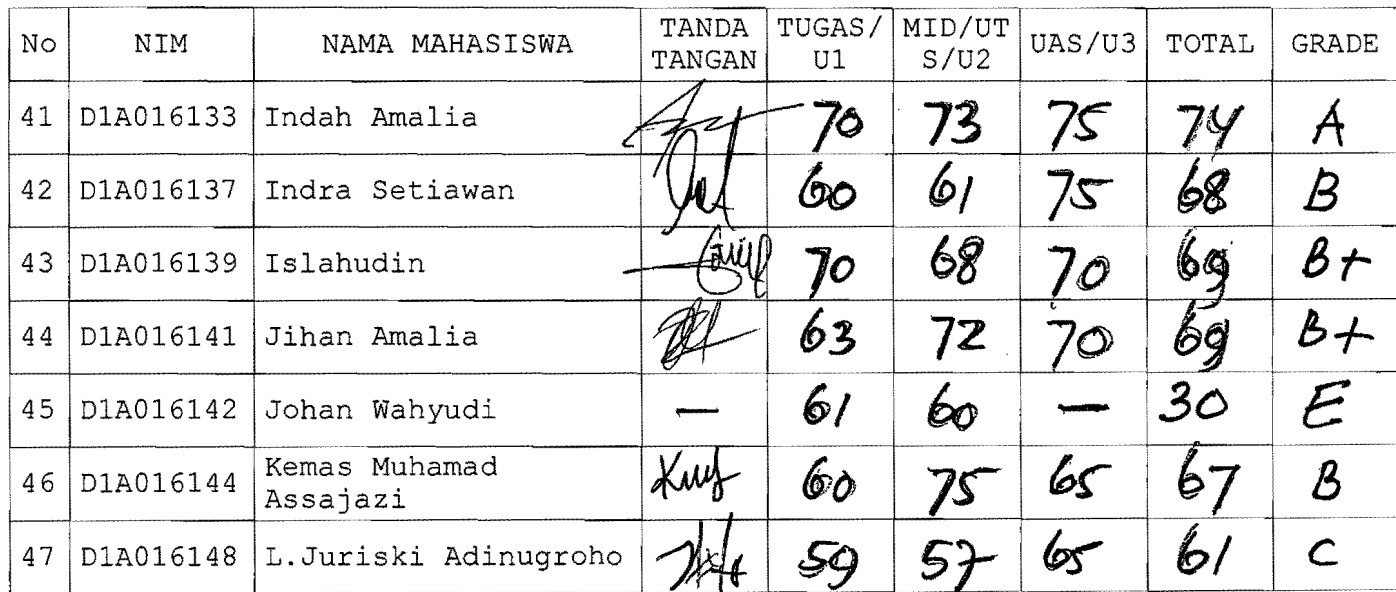 No NIM NAMA MAHASISWA TANDA TANGAN TUGAS/U1 MID/UTS/U2 UAS/U3 TOTAL GRADE
41 D1A016133 Indah Amalia 70 73 75 74 A
42 D1A016137 Indra Setiawan 60 61 75 68 B
43 D1A016139 Islahudin 70 68 70 69 B+
44 D1A016141 Jihan Amalia 63 72 70 69 B+
45 D1A016142 Johan Wahyudi — 61 60 — 30 E
46 D1A016144 Kemas Muhamad Assajazi 60 75 65 67 B
47 D1A016148 L.Juriski Adinugroho 59 57 65 61 C